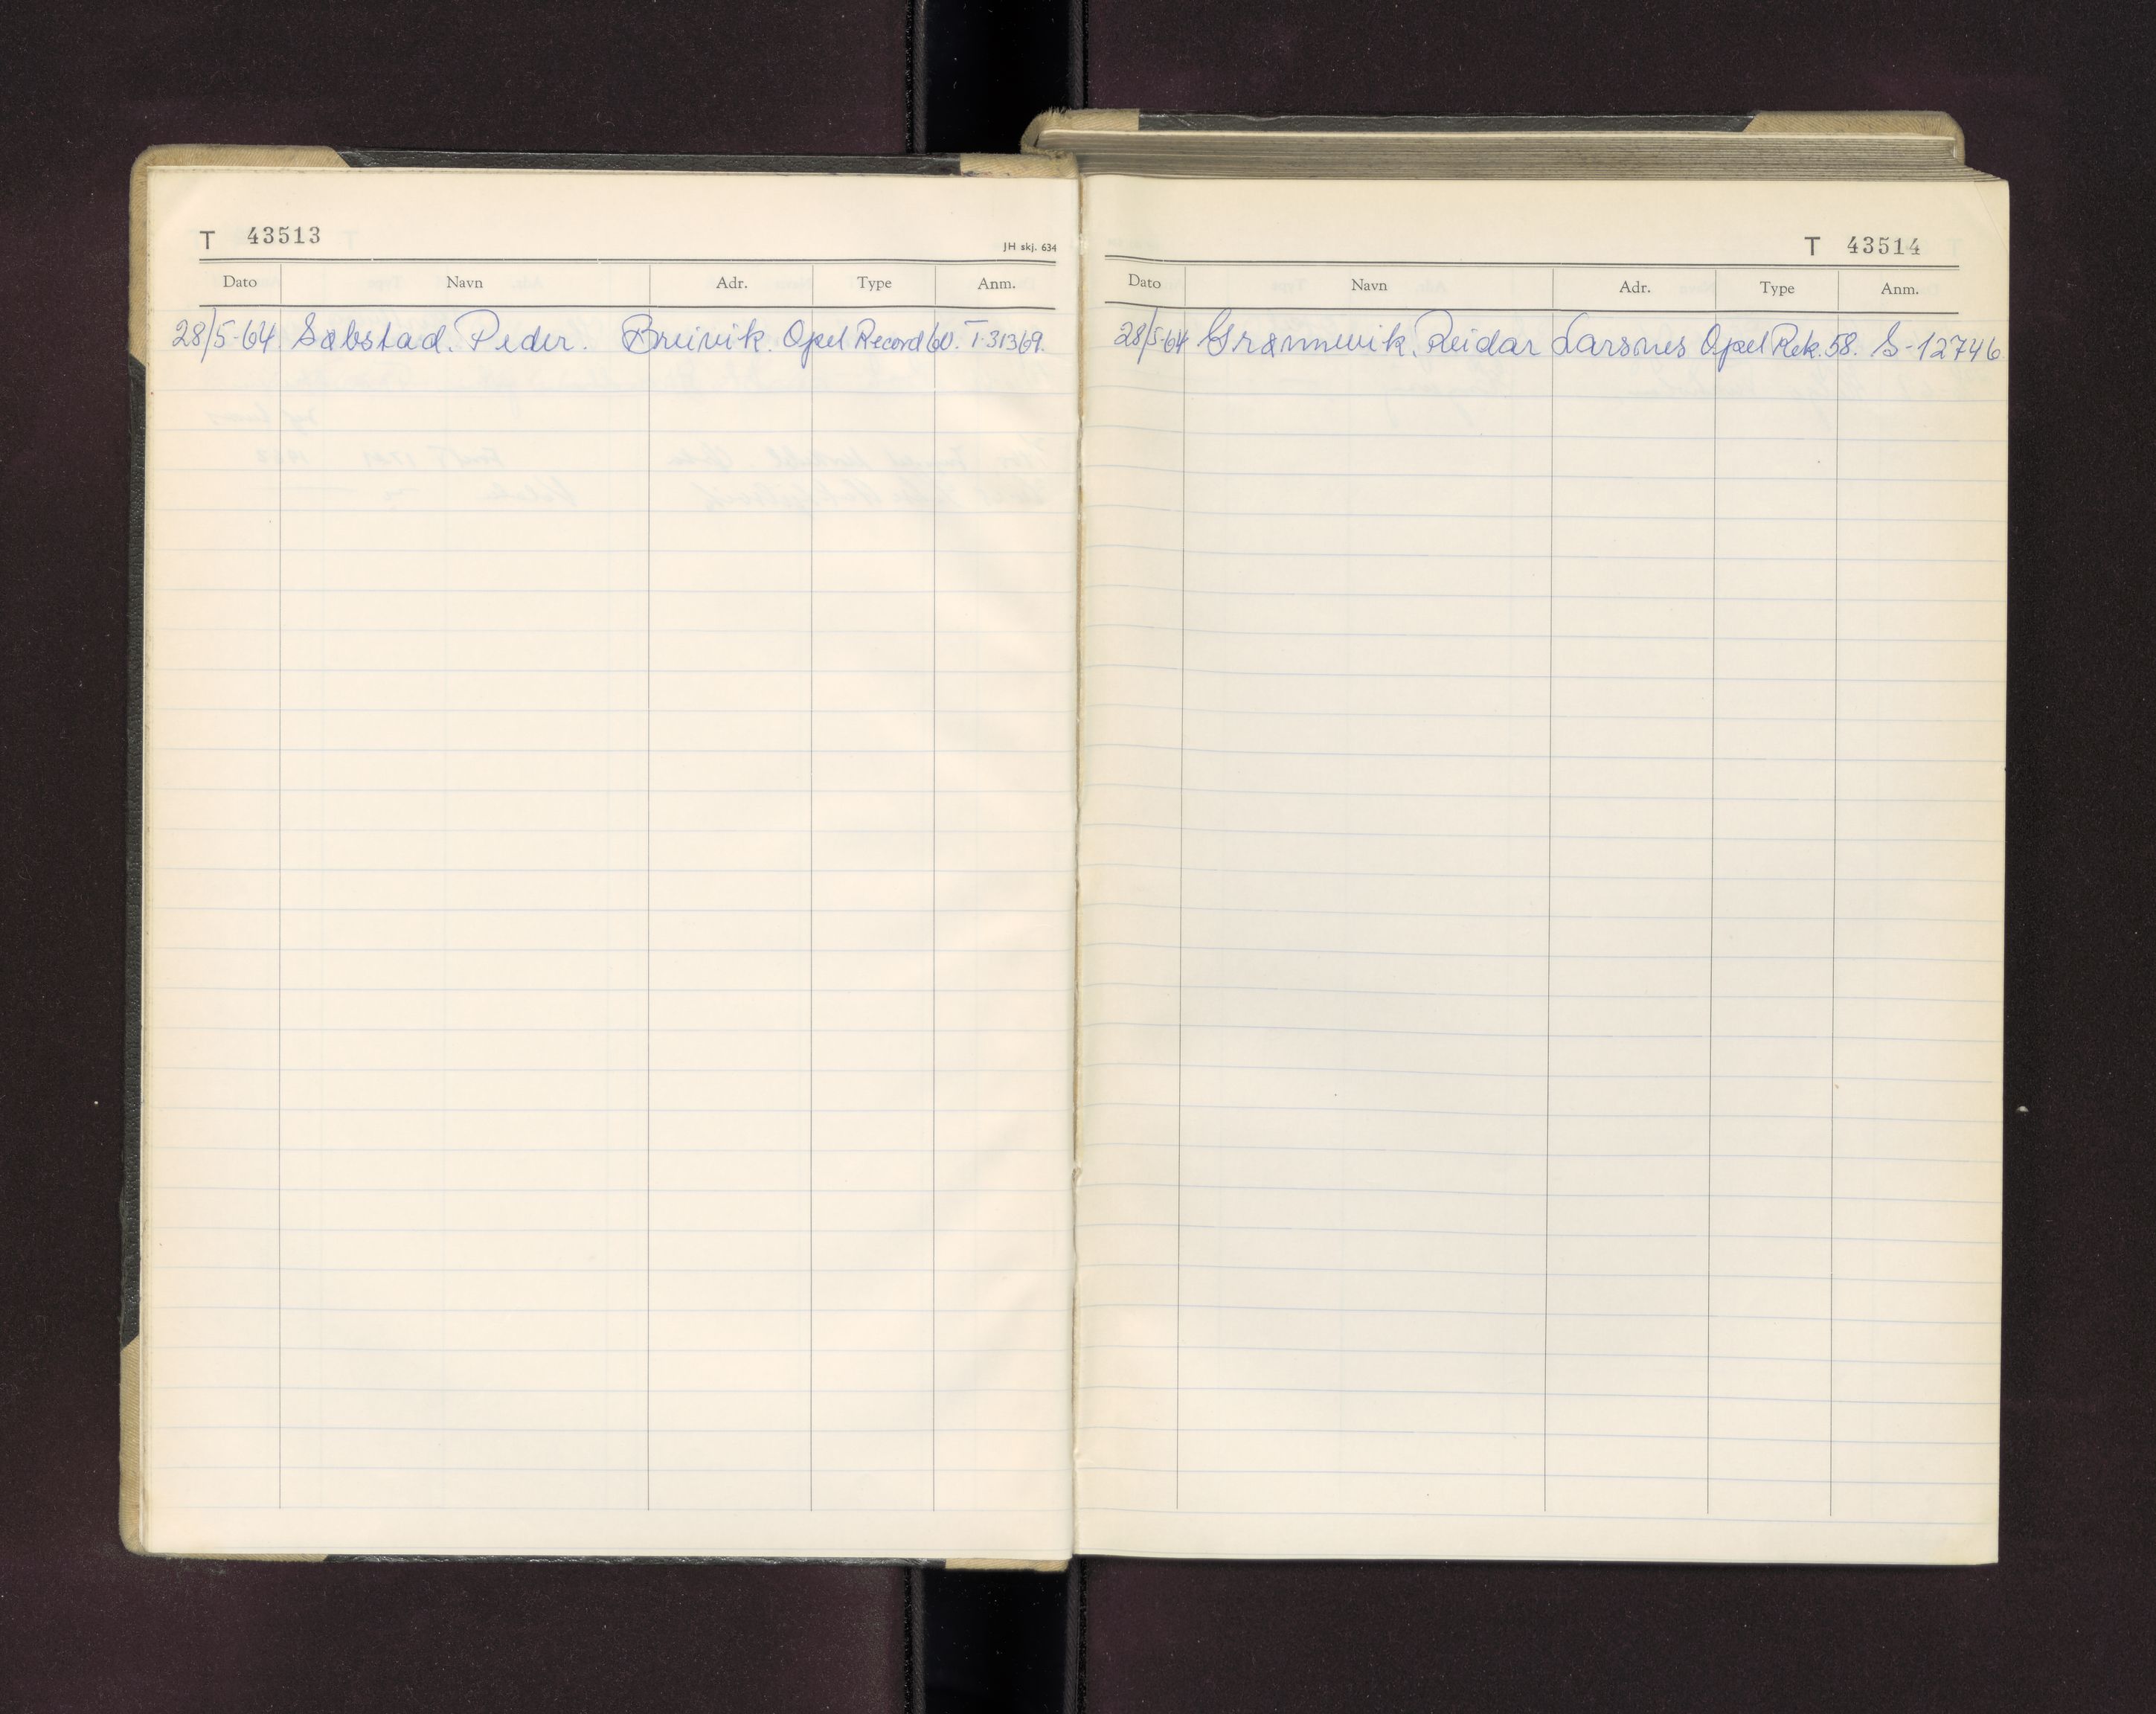 T 43513
JH skj. 634
Dato Navn Adr. Type Anm.
28/5-64 Sæbstad. Peder. Breivik. Opel Record 60. T-31369.
T 43514
Dato Navn Adr. Type Anm.
28/5-64 Grønnevik, Reidar Larsnes Opel Rek. 58. S-12746